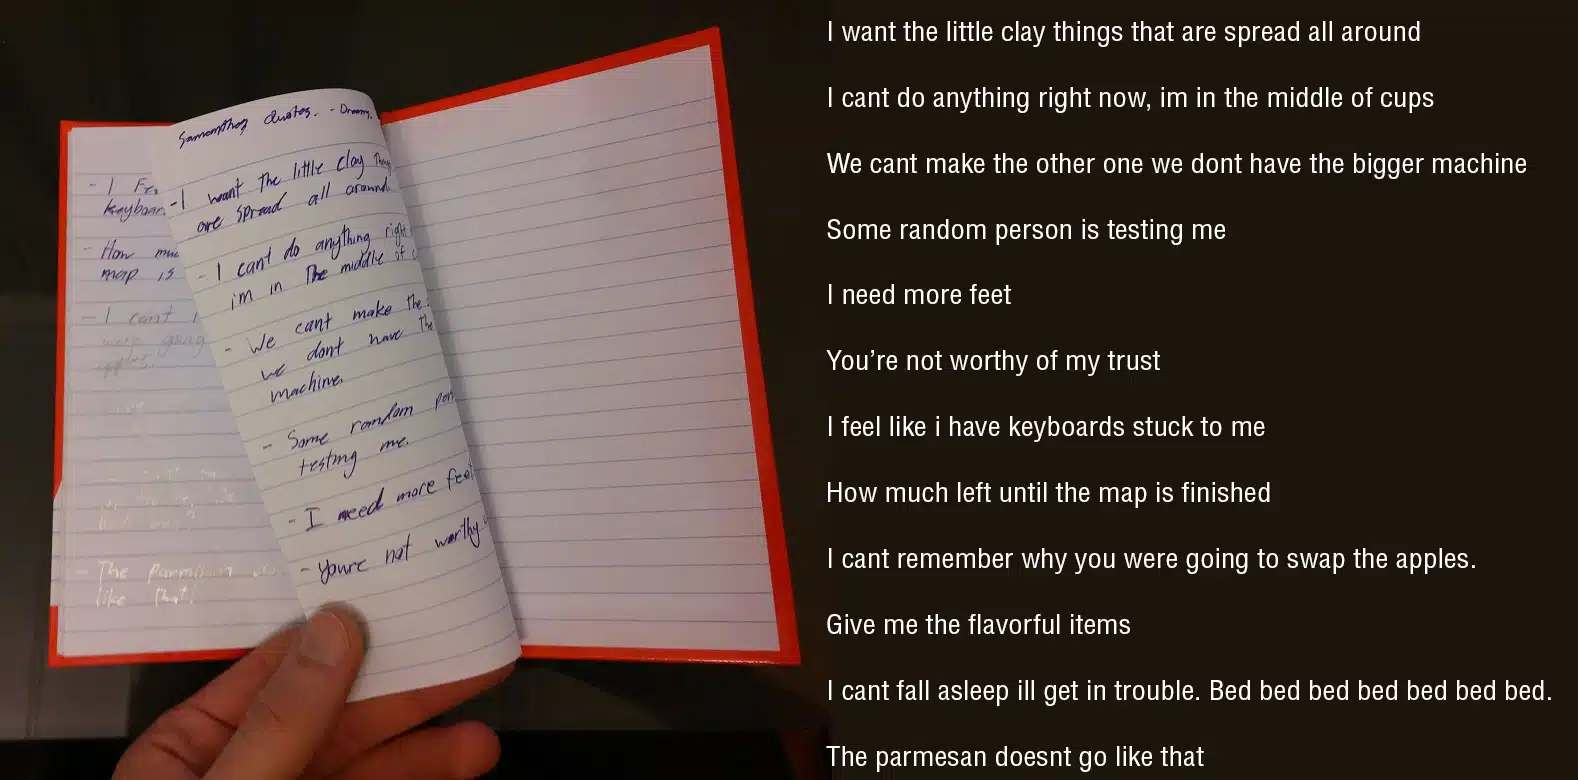 Samantha Quotes. - Dreams.
- I want the little clay
are spread all around
- I cant do anything right
im in the middle of
- We cant make the
we dont have the
machine.
- Some random
testing me.
- I need more feet
- Youre not worthy
- I
keyboar
- How muc
map is
- I cant
going
apples.
- The
like that.
I want the little clay things that are spread all around
I cant do anything right now, im in the middle of cups
We cant make the other one we dont have the bigger machine
Some random person is testing me
I need more feet
You’re not worthy of my trust
I feel like i have keyboards stuck to me
How much left until the map is finished
I cant remember why you were going to swap the apples.
Give me the flavorful items
I cant fall asleep ill get in trouble. Bed bed bed bed bed bed bed.
The parmesan doesnt go like that